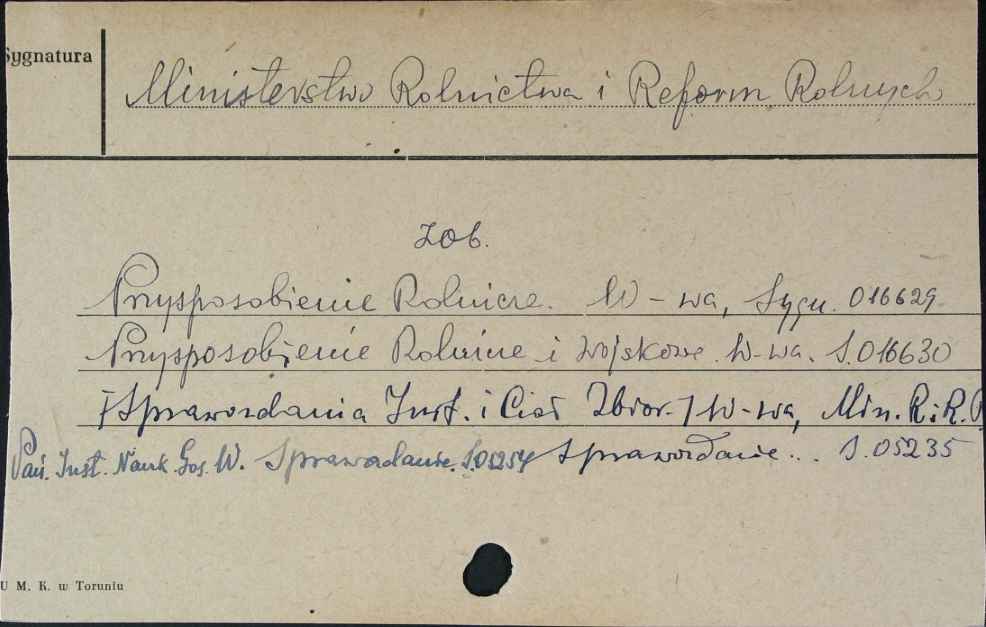 Sygnatura
Ministerstwo Rolnictwa i Reform Rolnych
zob.
Przysposobienie Rolnicze. W-wa, Sygn. 016629
Przysposobienie Rolnicze i wojskowe. W-wa. S. 016630
[Sprawozdania Inst. i Ciał Zbior.] W-wa, Min. R. i R. R
Pań. Inst. Nauk. Gos. W. Sprawozdanie. S. 05254 Sprawozdanie... S. 05235
U M. K. w Toruniu